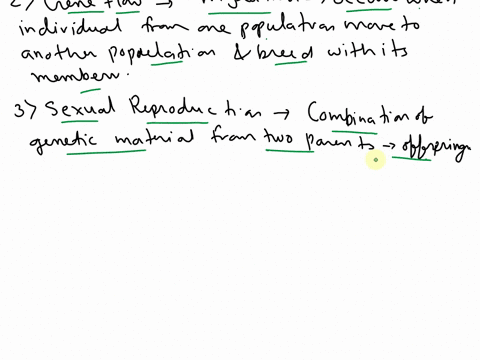 2) Gene flow → occurs when
individual from one population move to
another population & breed with its
members.
3) Sexual Reproduction → Combination of
genetic material from two parents → offspring